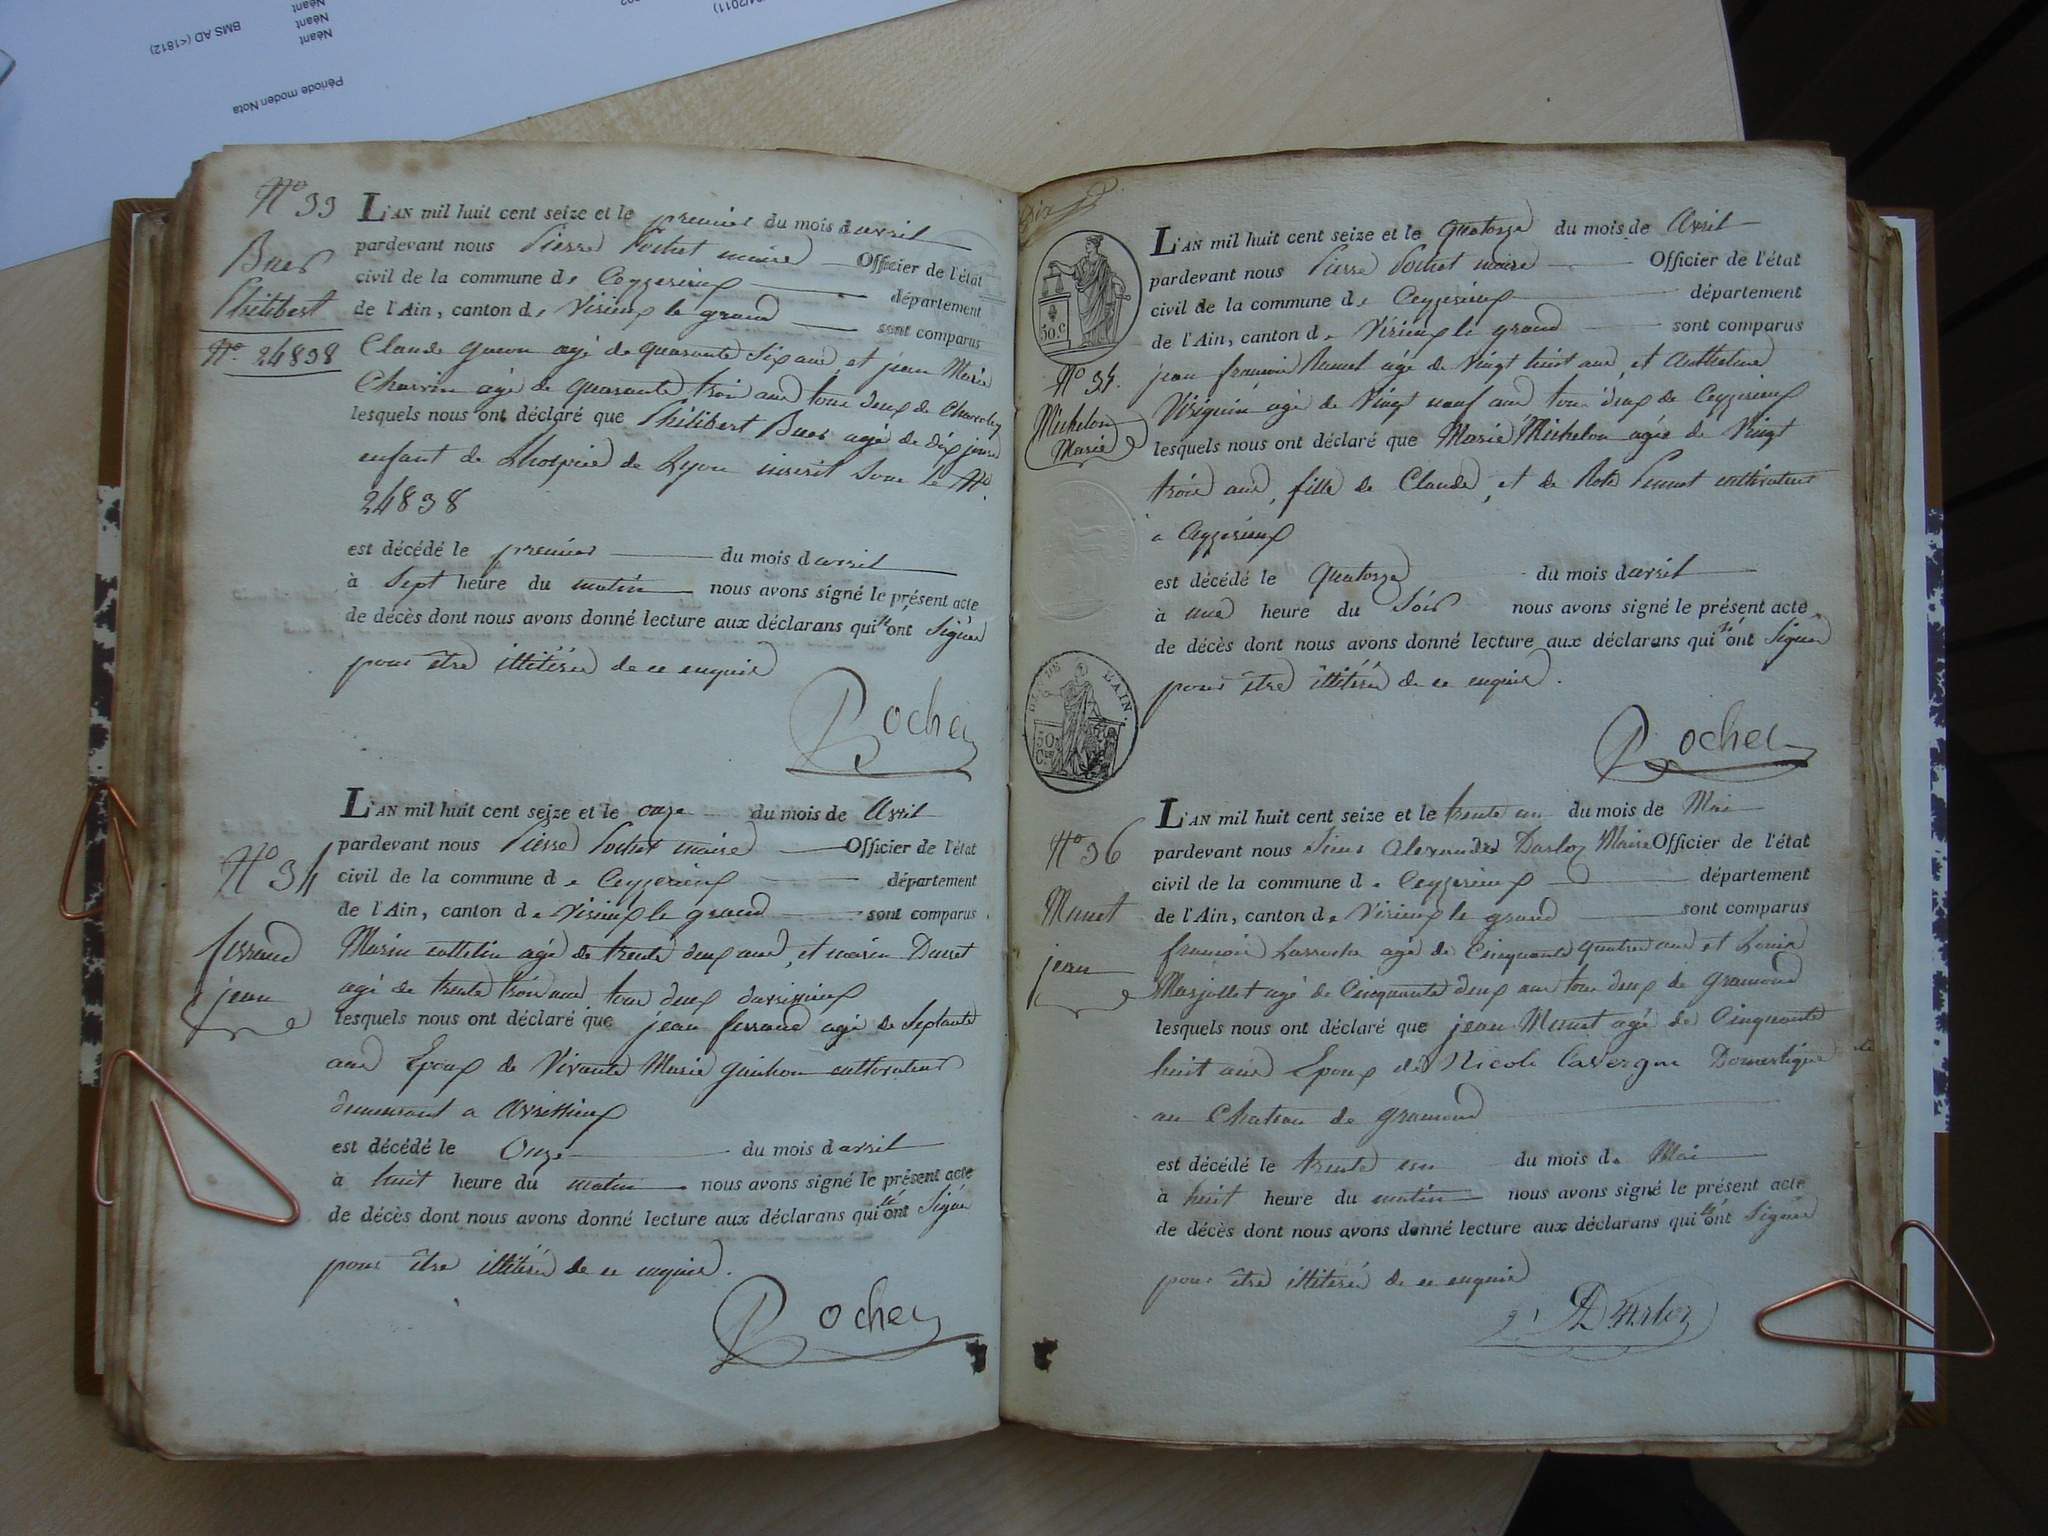 Période moden Nota
Néant
Néant
BMS AD (<1812)
N° 33
Buer
Philibert
N° 24838
L'AN mil huit cent seize et le premier du mois d'avril
pardevant nous Pierre Pochet maire Officier de l'état
civil de la commune de Ceyzerieux département
de l'Ain, canton de Virieux le grand sont comparus
Claude agé de quarante six ans, et jean Marie
Charvin agé de quarante trois ans tous deux de
lesquels nous ont déclaré que Philibert Buer agé de dix jours
enfant de Lhospice de Lyon inscrit sous le N°
24838
est décédé le premier du mois d'avril
à sept heure du matin nous avons signé le présent acte
de décès dont nous avons donné lecture aux déclarans qui n'ont signés
pour être illitérés de ce enquis
Pochet
L'AN mil huit cent seize et le onze du mois de Avril
N° 34
ferrand
jean
pardevant nous Pierre Pochet maire Officier de l'état
civil de la commune de Ceyzerieux département
de l'Ain, canton de Virieux le grand sont comparus
Marin cottelin agé de trente deux ans, et marin Ducret
agé de trente trois ans tous deux d'avrissieux
lesquels nous ont déclaré que jean ferrand agé de septante
ans Epoux de Vivante Marie guichon cultivateur
demeurant a Avrissieux
est décédé le Onze du mois d'avril
à huit heure du matin nous avons signé le présent acte
de décès dont nous avons donné lecture aux déclarans qui n'ont signé
pour être illitérés de ce enquis.
Pochet
Dix
50.c
N° 35.
Michelon
Marie
L'AN mil huit cent seize et le Quatorze du mois de Avril
pardevant nous Pierre Pochet maire Officier de l'état
civil de la commune de Ceyzerieux département
de l'Ain, canton de Virieux le grand sont comparus
jean francois agé de Vingt huit ans, et Anthelme
agé de Vingt neuf ans tous deux de Ceyzerieux
lesquels nous ont déclaré que Marie Michelon agée de Vingt
trois ans, fille de Claude, et de cultivateur
a Ceyzerieux
est décédé le Quatorze du mois d'avril
à une heure du soir nous avons signé le présent acte
de décès dont nous avons donné lecture aux déclarans qui n'ont signés
pour être illitérés de ce enquis.
Pochet
DE L'AIN.
50
Ces
L'AN mil huit cent seize et le trente un du mois de Mai
N° 36
Munet
jean
pardevant nous Sieur Alexandre Darloz Maire Officier de l'état
civil de la commune de Ceyzerieux département
de l'Ain, canton de Virieux le grand sont comparus
francois Larroche agé de Cinquante quatre ans et Louis
Marjollet agé de Cinquante deux ans tous deux de gramond
lesquels nous ont déclaré que jean Munet agé de Cinquante
huit ans Epoux de Nicole Lavergne Domestique
au Chateau de gramond
est décédé le trente un du mois de Mai
à huit heure du matin nous avons signé le présent acte
de décès dont nous avons donné lecture aux déclarans qui n'ont signés
pour être illitérés de ce enquis
A Darloz